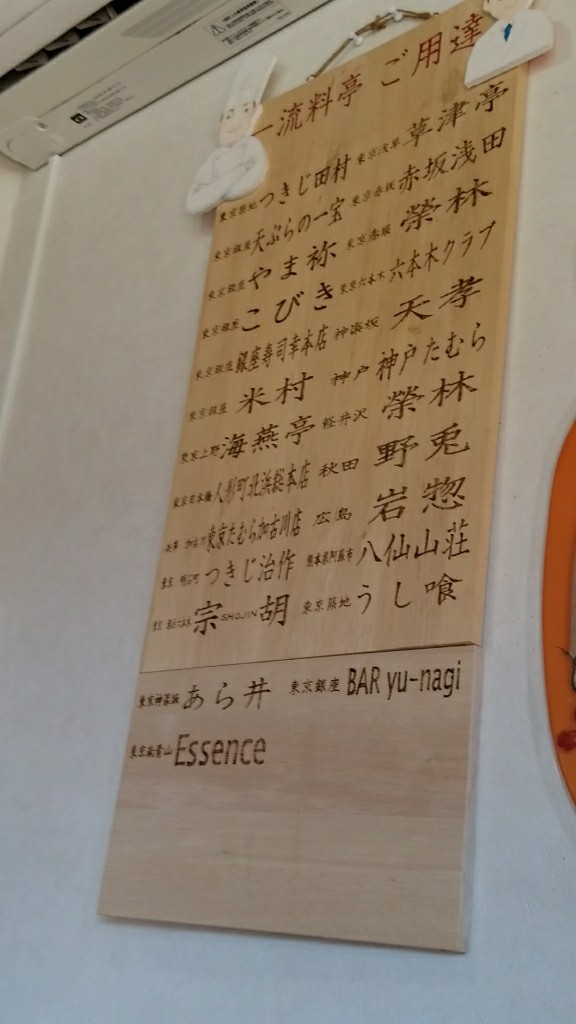 一流料亭 ご用達
東京築地 つきじ田村 東京浅草 草津亭
東京銀座 天ぷらの一宝 東京赤坂 赤坂浅田
東京銀座 やま祢 東京赤坂 榮林
東京銀座 こびき 東京六本木 六本木クラブ
東京銀座 銀座寿司幸本店 神楽坂 天孝
東京銀座 米村 神戸 神戸たむら
東京上野 海燕亭 軽井沢 榮林
東京日本橋 人形町北浜総本店 秋田 野兎
兵庫 加古川 東京たむら加古川店 広島 岩惣
東京 明石町 つきじ治作 熊本県阿蘇市 八仙山荘
東京 港区六本木 宗 SHOJIN 胡 東京築地 うし喰
東京神楽坂 あら井 東京銀座 BAR yu-nagi
東京南青山 Essence